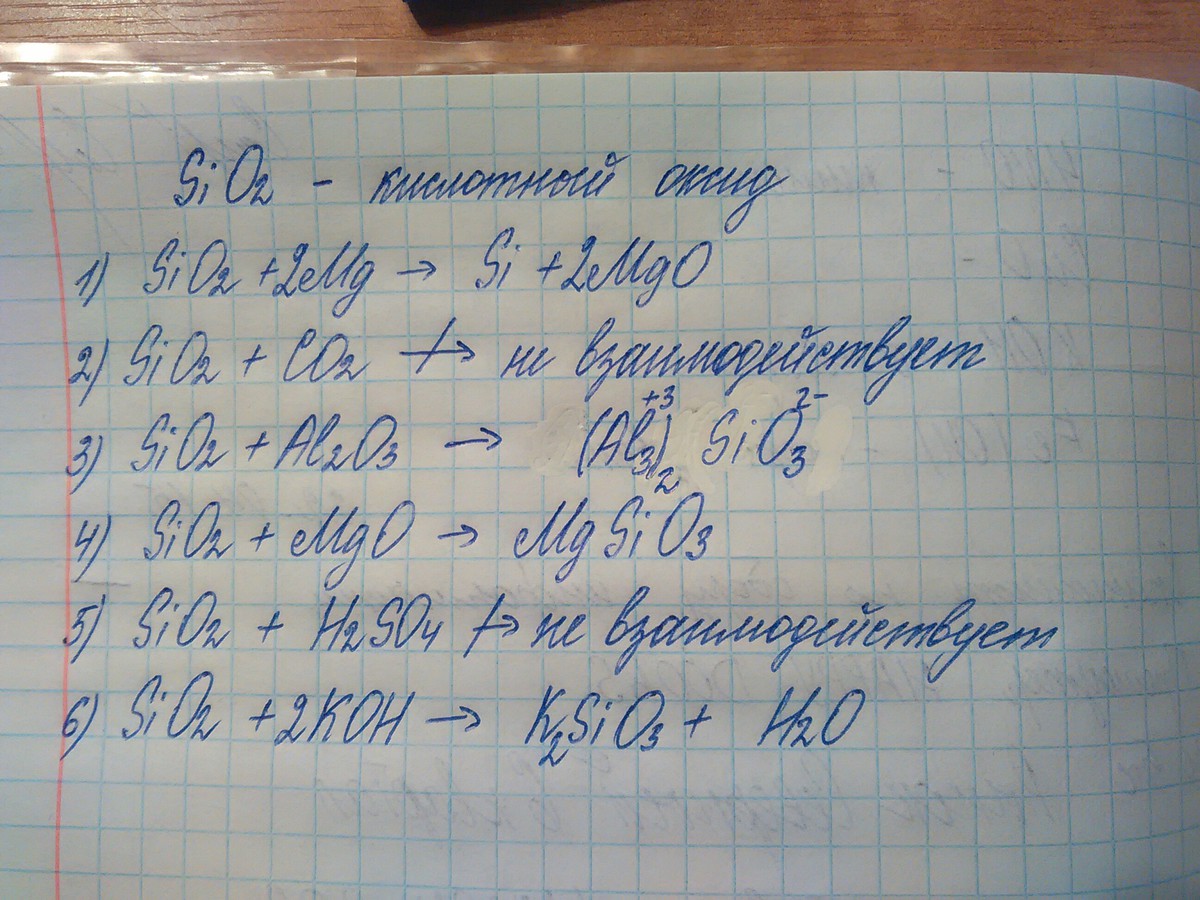 SiO2 - кислотный оксид
1) SiO2 + 2Mg → Si + 2MgO
2) SiO2 + CO2 ↛ не взаимодействует
3) SiO2 + Al2O3 → (Al3⁺³)2 SiO3²⁻
4) SiO2 + MgO → MgSiO3
5) SiO2 + H2SO4 ↛ не взаимодействует
6) SiO2 + 2KOH → K2SiO3 + H2O